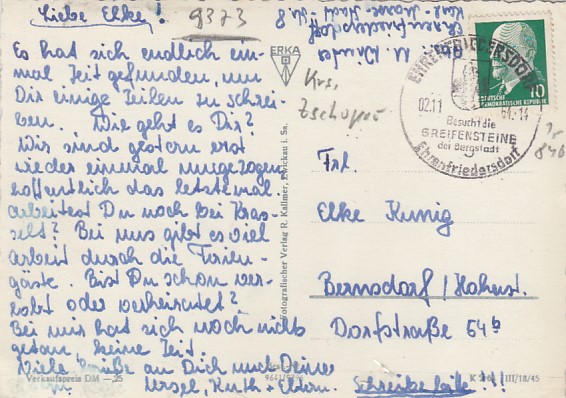 Liebe Elke!
9373
Es hat sich endlich ein-
mal Zeit gefunden, um
Dir einige Zeilen zu schrei-
ben. Wie geht es Dir?
Wir sind gestern erst
wieder einmal umgezogen
hoffentlich das letztemal.
Arbeitest Du noch bei Kras-
selt? Bei uns gibt es viel
Arbeit durch die Ferien-
gäste. Bist Du schon ver-
lobt oder verheiratet?
Bei mir hat sich noch nichts
getan, keine Zeit.
Viele Grüße an Dich und Deine
Ursel, Kurth + Eltern. Schreibe bitte!!
Verkaufspreis DM —.25
ERKA
Fotografischer Verlag R. Kallmer, Zwickau i. Sa.
Ehrenfriedersdorf
Krs.
Zschopau
EHRENFRIEDERSDORF
02.11 61.-14
Besucht die
GREIFENSTEINE
bei Bergstadt
Ehrenfriedersdorf
10
DEUTSCHE
DEMOKRATISCHE REPUBLIK
Frl.
Elke Kunig
Bernsdorf/Hohenst.
Dorfstraße 54b
III/18/45